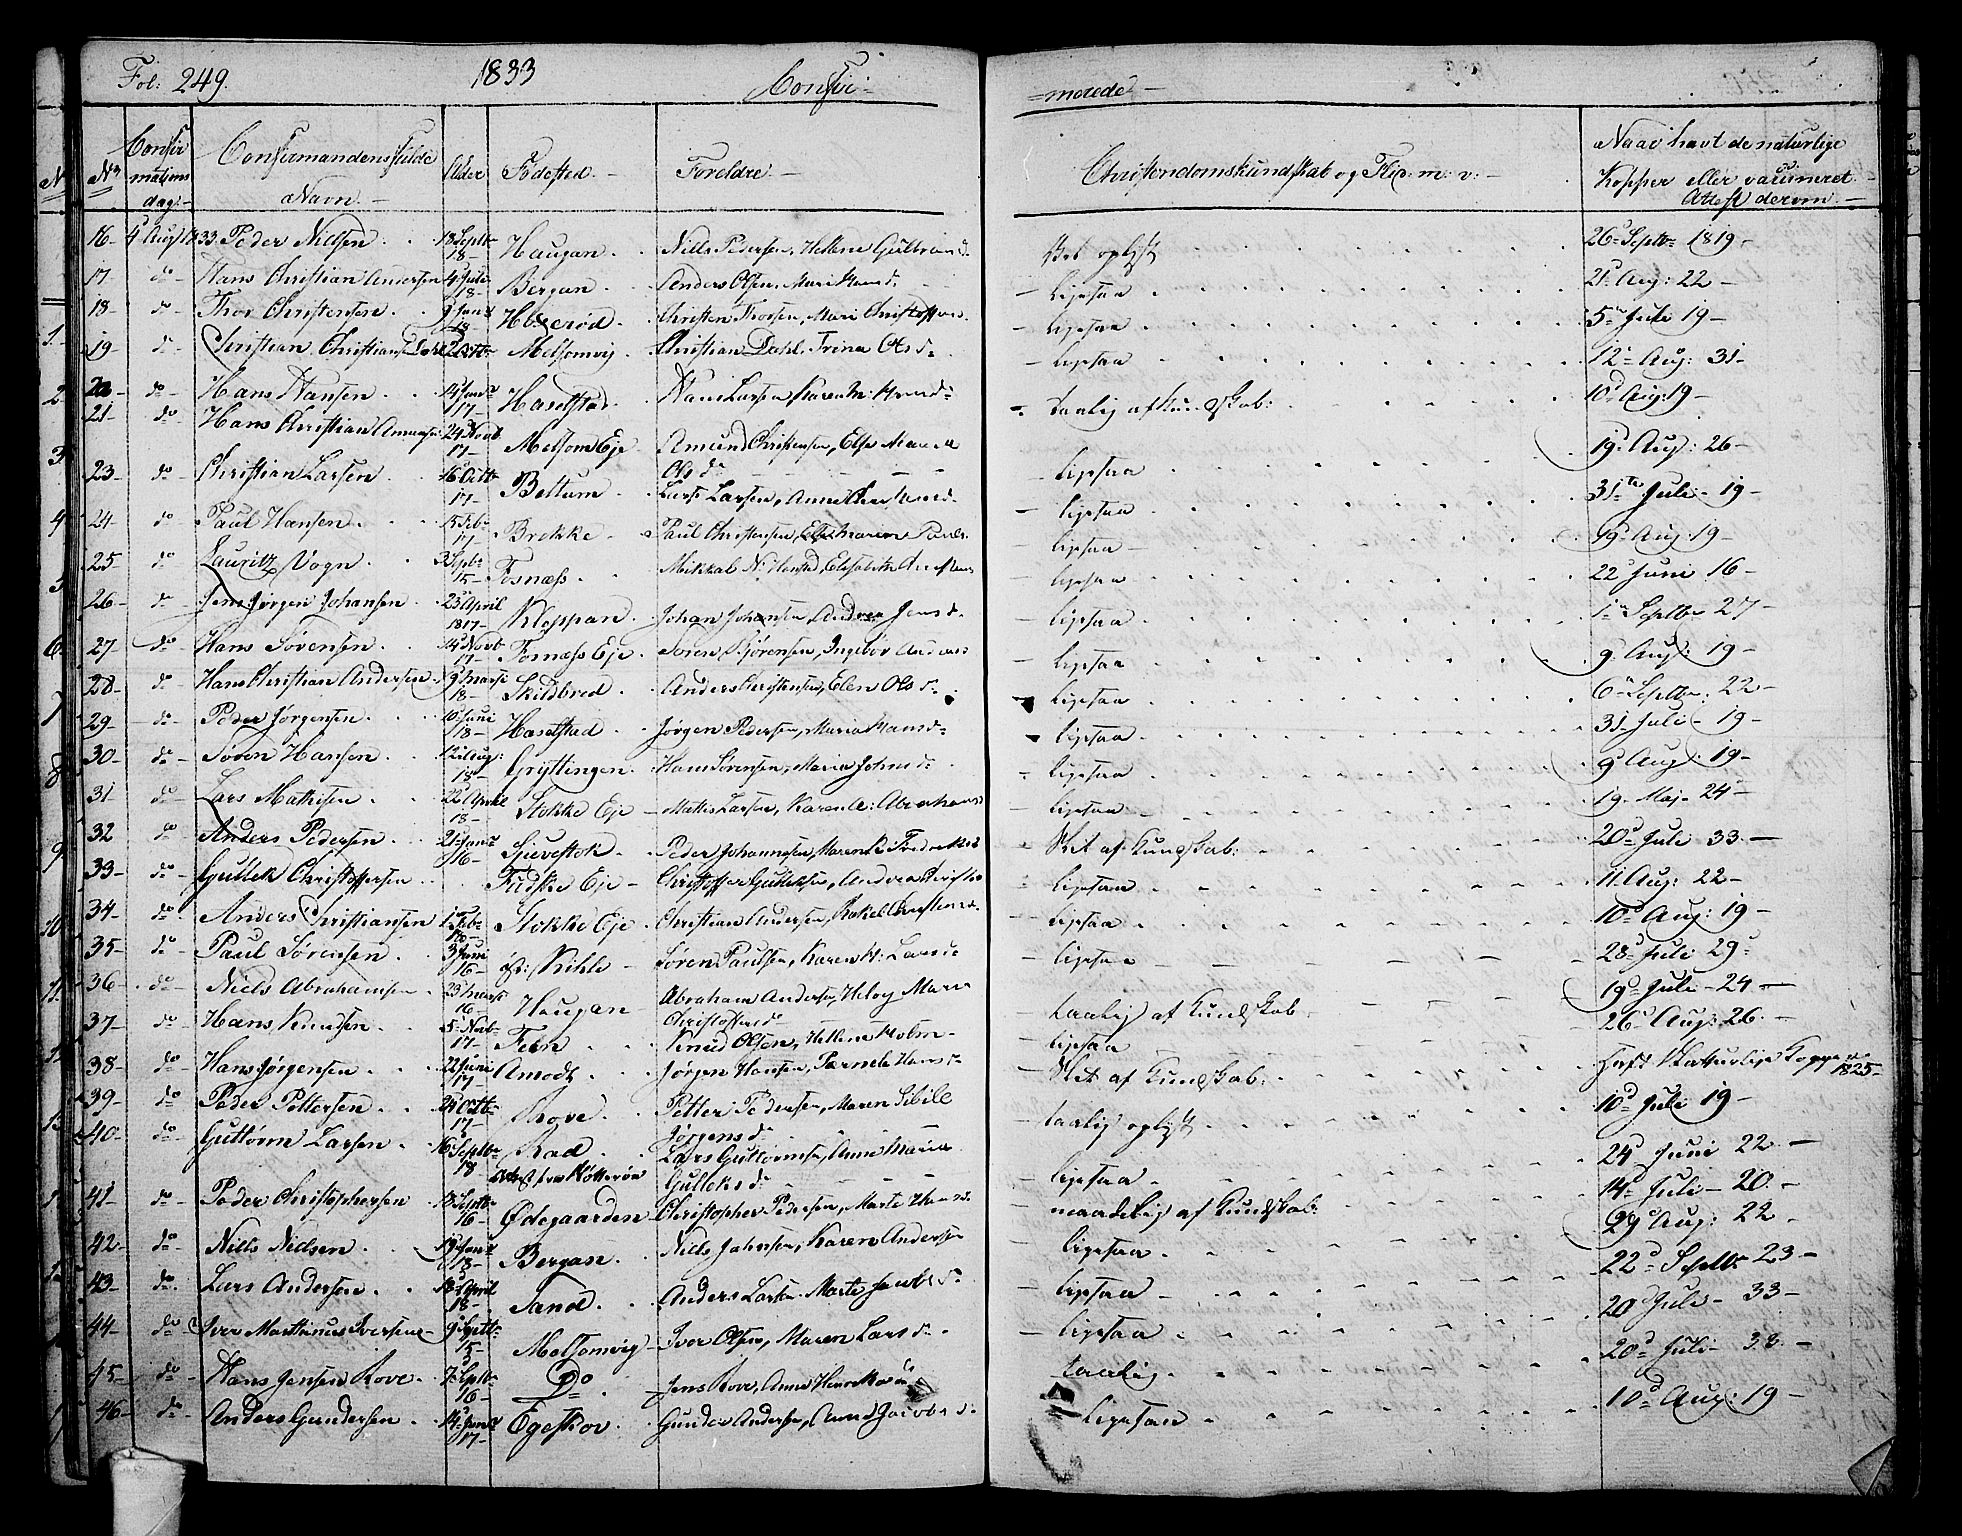 Fol: 249.
1833
Confir=
=merede
No
Confir
mations
dag.
Confirmandens fulde
Navn.
Alder
Fødested.
Foreldre.
Christendomskundskab og Flid m: v:
Naar havt de naturlige
Kopper eller vaccineret
Attest derom.
16 4 Aug 1833 Peder Nielsen 18 Septb 18 Haugan Niels Pedersen, Hellene Gulbrand d. 26 Septb 1819
17 do Hans Christian Andersen 4 Juli 18 Bergan Anders Olsen, Mari Hans d. ligesaa 21 Aug: 22
18 do Thor Christensen 9 Janr 18 Christen Thorsen, Mari ligesaa 5 Juli 19
19 do Christian Christians: Dahl Melsomvig Christian Dahl, Trina Ols d. ligesaa 12 Aug: 31
20 do Hans Hansen 14 Janr 17 Haselstad Hans Larsen, Karen M: Hans d: taalig af Kundskab: 10 Aug: 19
21 do Hans Christian 24 Novb 17 Melsom Eje Amund Christensen, Else Maria
Ols d. ligesaa 19 Aug: 26
23 do Christian Larsen 16 Octb 17 Bettum Lars Larsen, Anne ligesaa 31te Juli 19
24 do Paul Hansen 15 Feb 17 Brekke Paul Christensen, Else Maren ligesaa 19 Aug 19
25 do Lauritz Vogn 3 Septb 15 Fosnæss Mikkel ligesaa 22 Juni 16
26 do Jens Jørgen Johansen 23 April 1817 Kleppan Johan Johansen, Andrea Jens d. ligesaa 1 Septb 27
27 do Hans Sørensen 14 Novb 17 Fornæss Eje Søren Sørensen, Ingebor Anders ligesaa 9 Aug: 19
28 do Hans Christian Andersen 9 Marts 18 Skildbred Anders Christensen, Elen Ols d. ligesaa 6 Septb: 22
29 do Peder Jørgensen 10 Juni 18 Haselstad Jørgen Pedersen, Maria Hans d. ligesaa 31 Juli 19
30 do Søren Hansen 12 Aug: 18 Gryttingen Hans Sørensen, Maria Johns d. ligesaa 9 Aug: 19
31 do Lars Mathisen 22 April 18 Stokke Eje Mathis Larsen, Karen A: Abrahams d ligesaa 19 Maj 24
32 do Anders Pedersen 21 Janr 16 Sjuestok Peder Johannesen, Maren Slet af Kundskab: 20 Juli 33.
33 do Gullek Christoffersen Fudske Eje Christoffer Gulleksen, Andrea ligesaa 11 Aug: 22
34 do Anders Christiansen 1 Feb 18 Stokke Eje Christian Andersen, Rakel ligesaa 10 Aug: 19
35 do Paul Sørensen 3 Juni 16 Kihle Søren Paulsen, Karen H: Lars d: ligesaa 28 Juli 29
36 do Niels Abrahamsen 23 Marts 16 Haugan Abraham Andersen, Helvig Maria
Christoffers d. taalig af Kundskab 19 Juli 24
37 do Hans Knudsen 5 Novb 17 Feen Knud Olsen, Hellene Holm ligesaa 26 Aug: 26.
38 do Hans Jørgensen 22 Juni 17 Amodt Jørgen Hansen, Pernele Hans d. Slet af Kundskab: Havt Naturlige Kopper 1825
39 do Peder Pettersen 24 Octb 17 Rove Petter Pedersen, Maren Sibile
Jørgens d. taalig oplyst 10 Juli 19
40 do Guttorm Larsen 16 Septb 18 Rød Lars Guttormsen, Anne Maria
Gulleks d. ligesaa 24 Juni 22
41 do Peder Christophersen 18 Septb 16 Ødegaarden Christopher Pedersen, Marte Hans d. maadelig af Kundskab: 14 Juli 20.
42 do Niels Nielsen 19 Janr 18 Bergan Niels Johnsen, Karen Anders ligesaa 29 Aug: 22
43 do Lars Andersen 18 April 18 Sand Anders Larsen, Marte Jacobs d. ligesaa 22 Septb 23
44 do Iver Marthinus Iversen 9 15 Melsomvig Iver Olsen, Maren Lars d. ligesaa 20 Juli 33
45 do Hans Jensen Rove 7 Septb 16 Do Jens Rove, Anne taalig 20 Juli 33.
46 do Anders Gundersen 14 Janr 17 Egeskov Gunder Andersen, Anne Jacobs d. ligesaa 10 Aug: 19